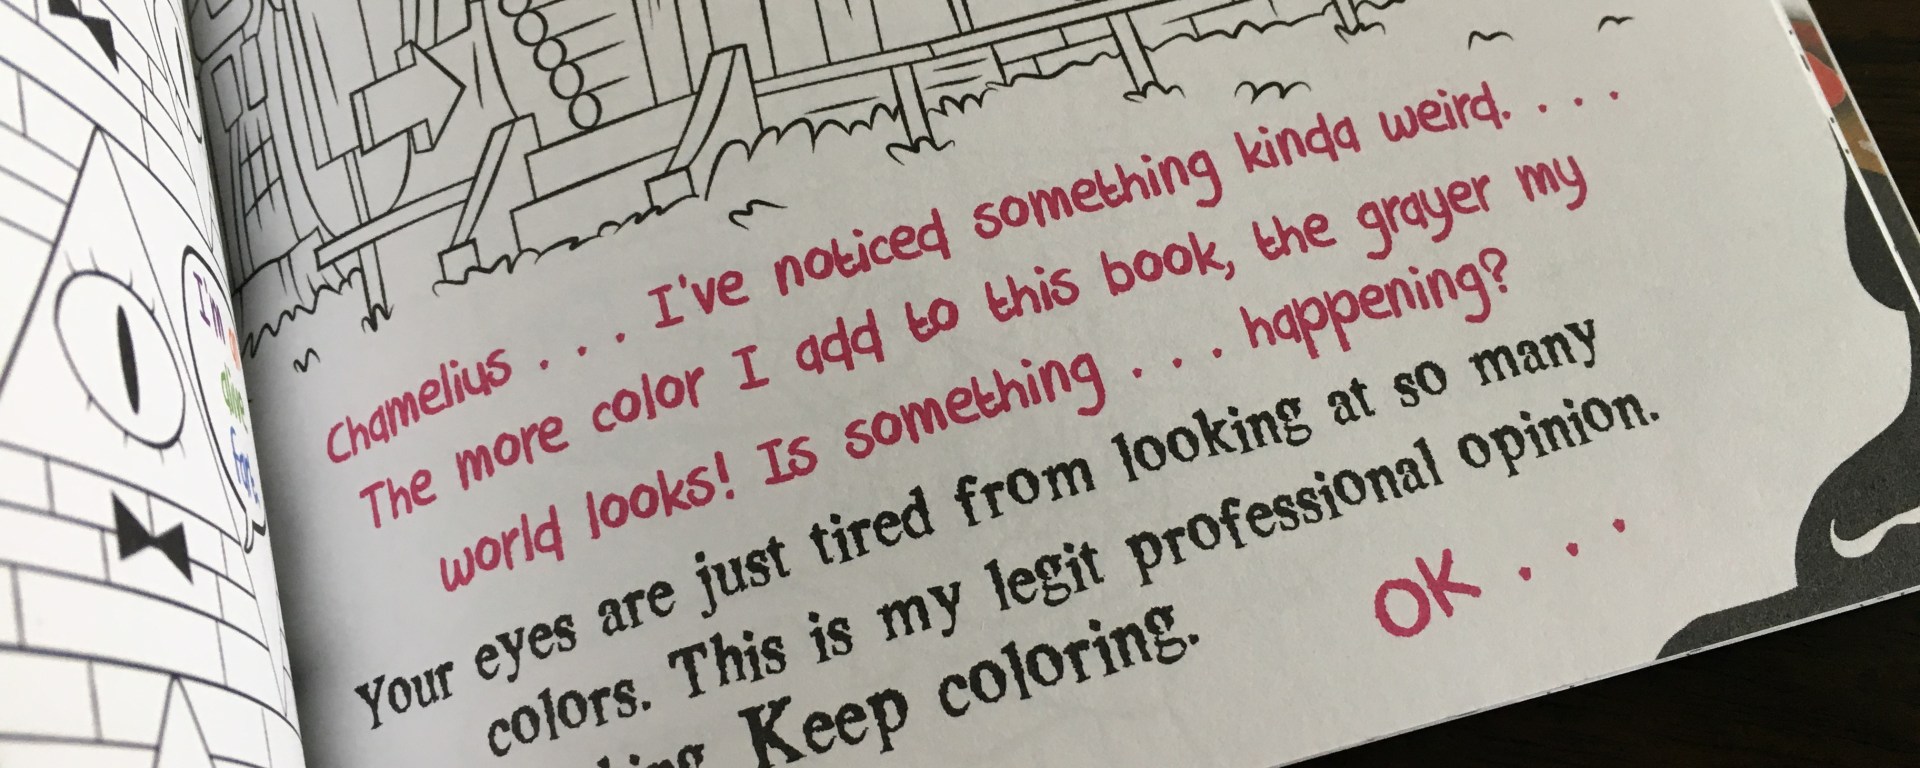 I'm a
alive
for
Chamelius . . . I've noticed something kinda weird. . . .
The more color I add to this book, the grayer my
world looks! Is something . . . happening?
Your eyes are just tired from looking at so many
colors. This is my legit professional opinion.
Keep coloring.
OK . . .